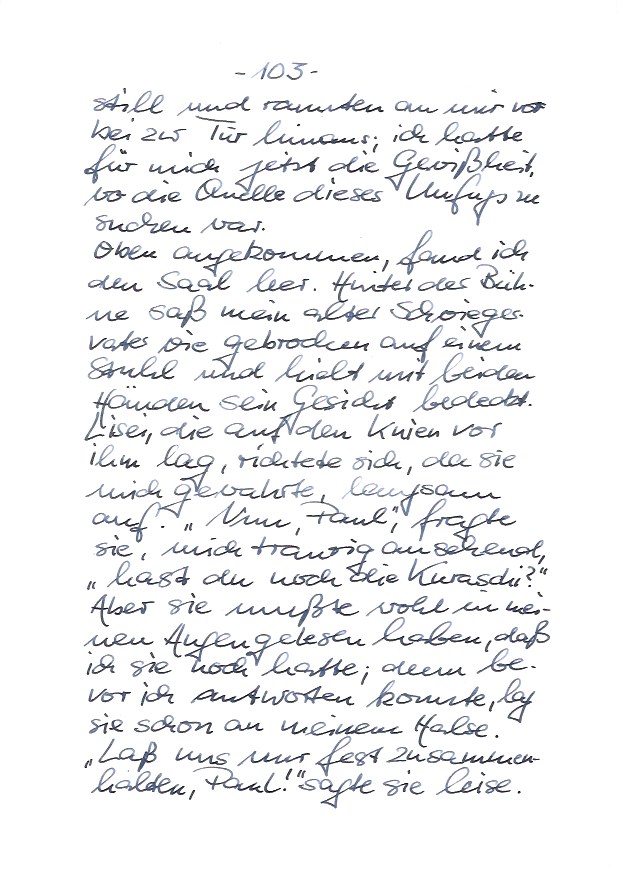 - 103 -
still und rannten an mir vor
bei zur Tür hinaus; ich hatte
für mich jetzt die Gewißheit,
wo die Quelle dieses Unfugs zu
suchen war.
Oben angekommen, fand ich
den Saal leer. Hinter der Büh-
ne saß mein alter Schwieger-
vater wie gebrochen auf einem
Stuhl und hielt mit beiden
Händen sein Gesicht bedeckt.
Lisei, die auf den Knien vor
ihm lag, richtete sich, da sie
mich gewahrte, langsam
auf. „Nun, Paul", fragte
sie, mich traurig ansehend,
„hast du noch die Kuraschi?"
Aber sie mußte wohl in mei-
nen Augen gelesen haben, daß
ich sie noch hatte; denn be-
vor ich antworten konnte, lag
sie schon an meinem Halse.
„Laß uns nur fest zusammen-
halten, Paul!" sagte sie leise.